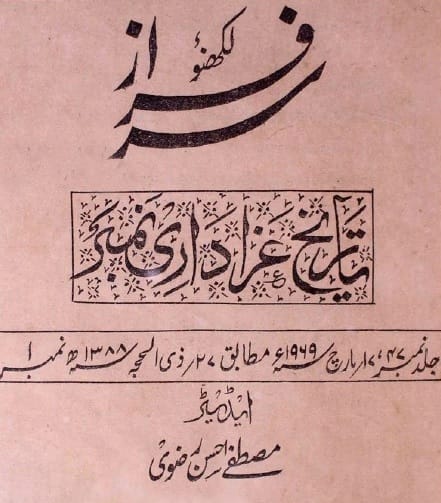 سرفراز لکھنؤ
تاریخ عزاداری نمبر
جلد نمبر ۴۷، ۱۷؍ مارچ سنہ ۱۹۶۹ء مطابق ۲۷؍ ذی الحجہ سنہ ۱۳۸۸ھ نمبر ۱
ایڈیٹر
مصطفےٰ حسن رضوی